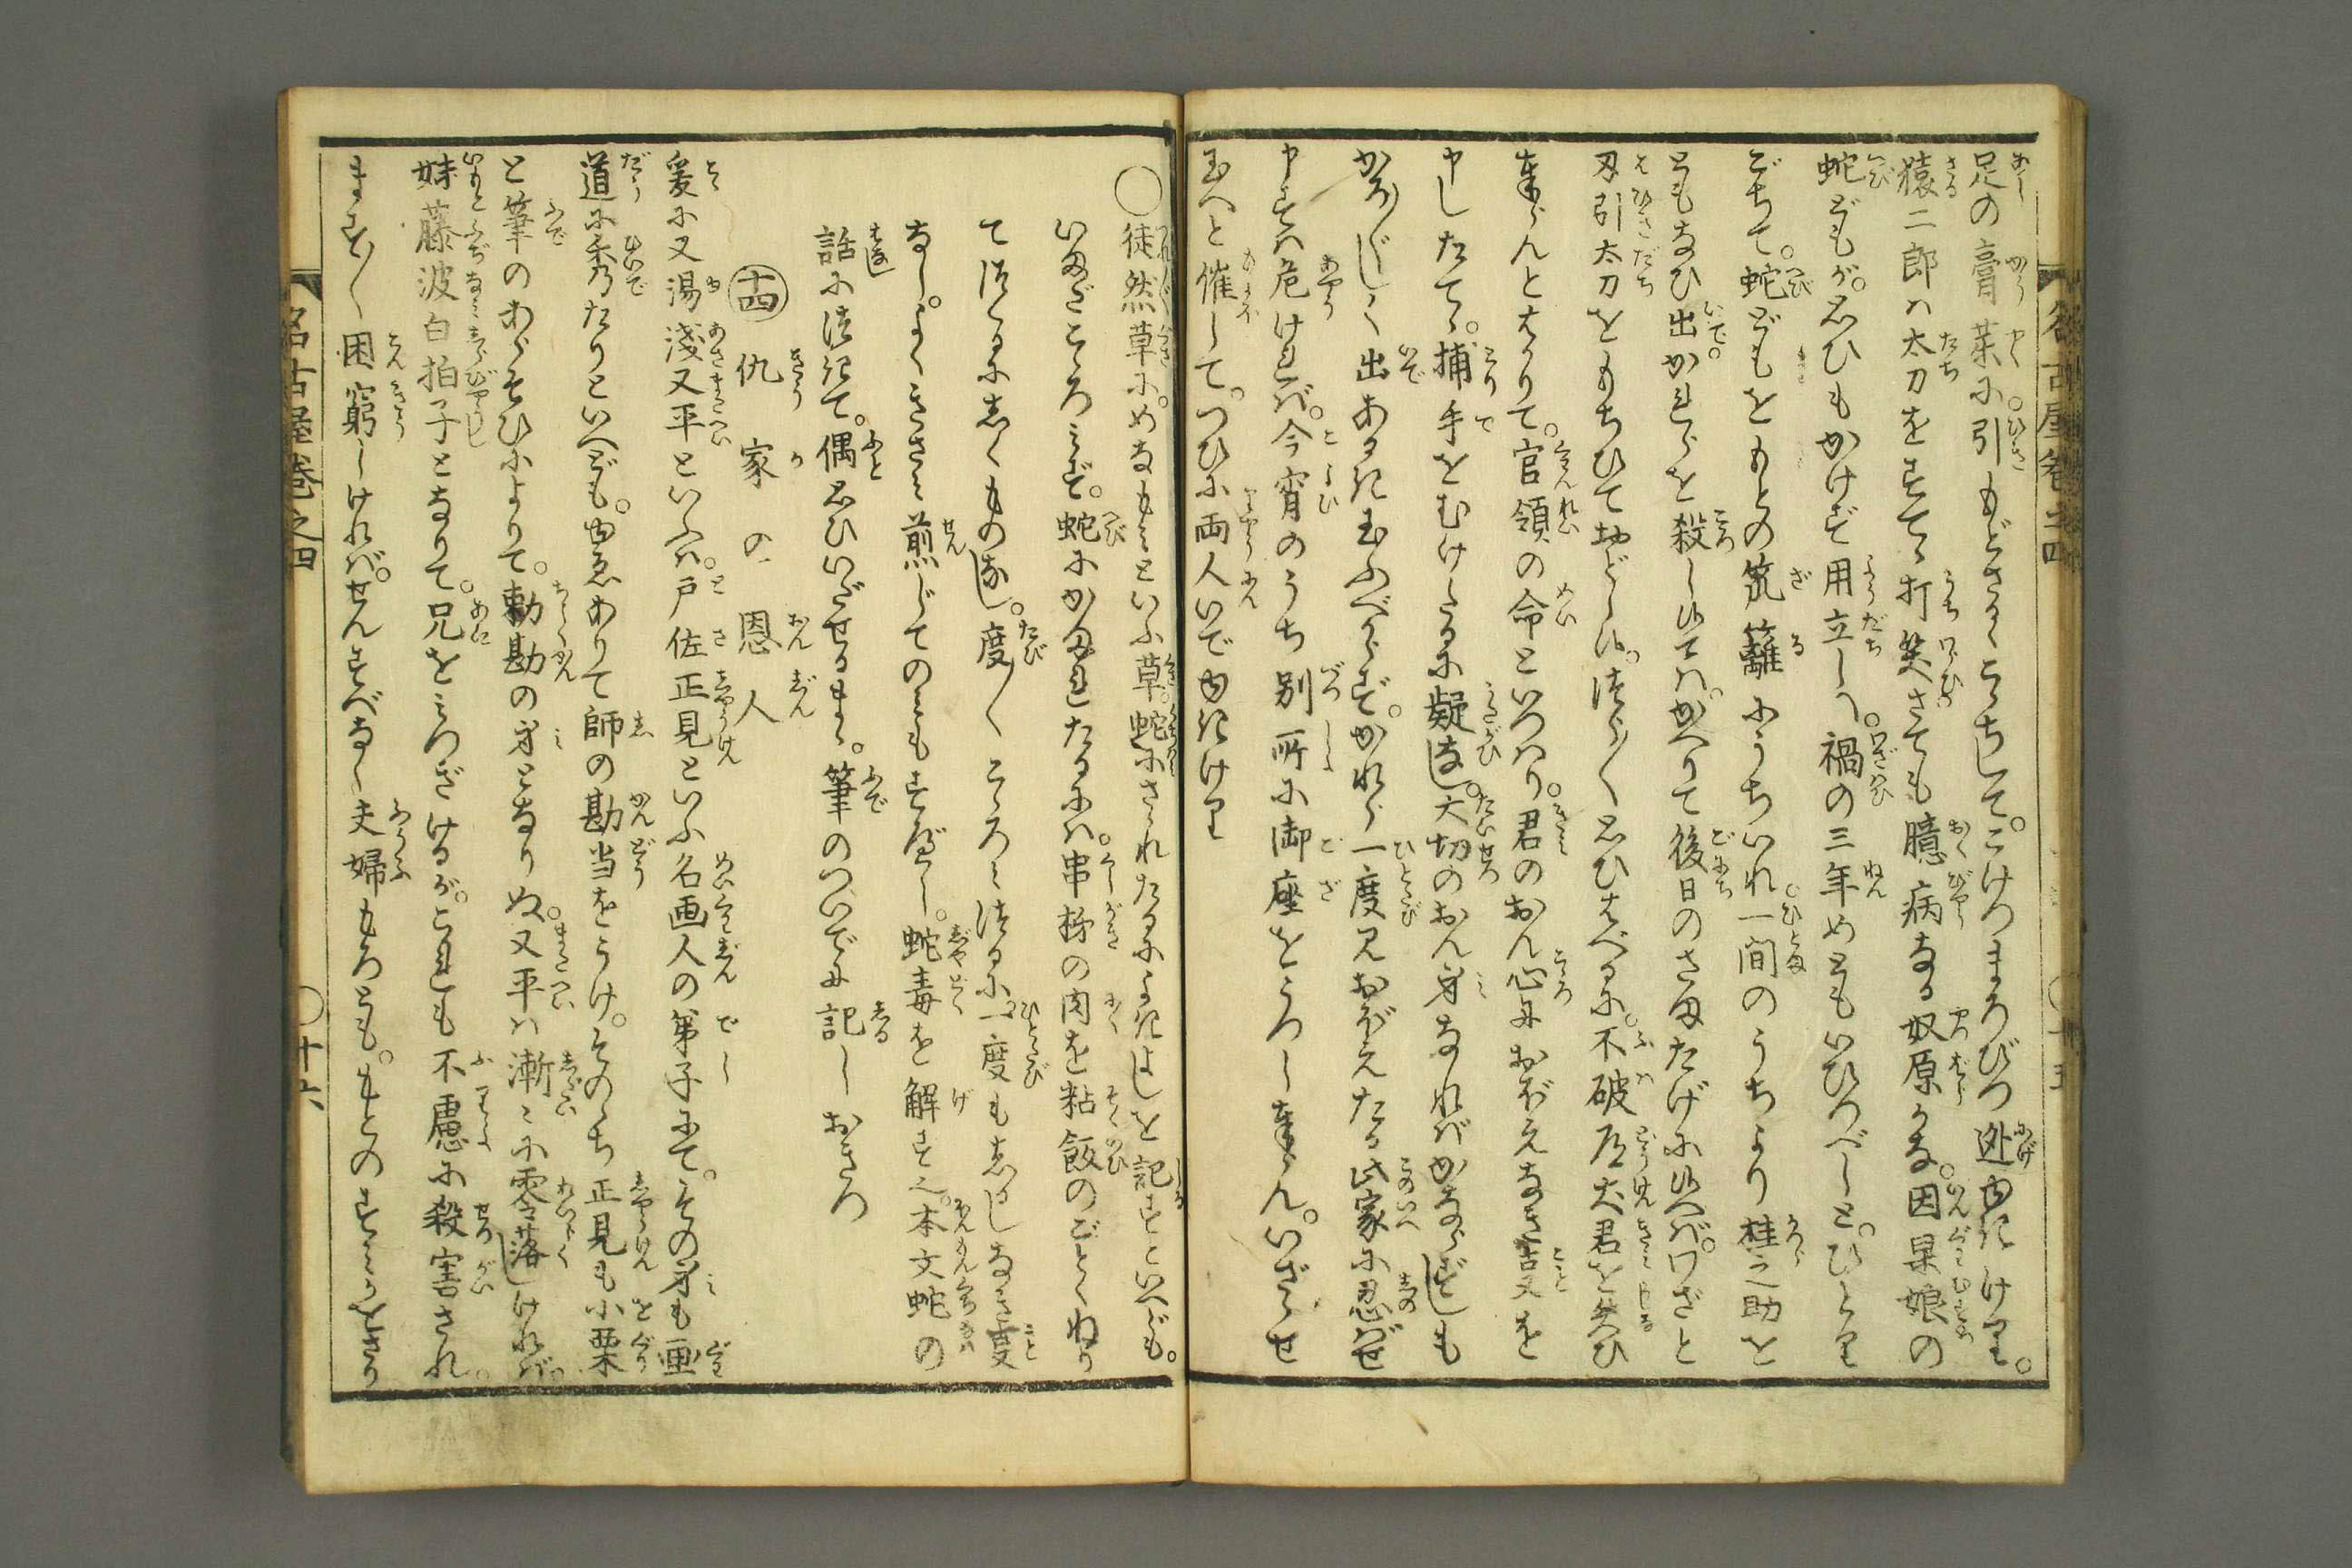 足の膏薬に引もどさるゝこゝちして。こけつまろびつ逃ゆきけり。
猿二郎は太刀をすてゝ打笑さても臆病なる奴原かな。因果娘の
蛇どもが。思ひもかけず用立しハ。禍の三年めともいひつべしと。ひとり
ごちて。蛇どもをもとの笊籬にうちいれ。一間のうちより桂之助を
ともなひ出。かれらを殺し候てハ。かへりて後日のさまたげに候へバ。わざと
刃引太刀をもちひておどし候。つら〳〵思ひはべるに。不破道犬君を失ひ
奉らんとはかりて。官領の命といつハり。君のおん心におぼえなき事を
申したてゝ。捕手をむけしに疑なし。大切のおん身なれバかならずしも
かろ〴〵しく出あるき玉ふべからず。かれら一度見おぼえたる此家に忍ばせ
申すハ危ければ。今宵のうち別所に御座をうつし奉らん。いざゝせ
玉へと催して。つひに両人いでゆきけり
○徒然草に。めなもみといふ草。蛇にさゝれたるによきよしを記すといへども。
いまだこゝろみず。蛇にかまれたるにハ。串柿の肉を粘飯のごとくねり
てつくるにしくものなし。度〳〵こゝろみつるに一度もしるしなき事
なし。よくきざミ煎じてのミもすべし。蛇毒を解す也。本文蛇の
話につきて。偶思ひいだせるまゝ。筆のついでに記しおきつ
十四 仇家の恩人
爰に又湯浅又平といふハ。戸佐正見といふ名画人の弟子にて。その身も画
道に秀たりといへども。ゆゑありて師の勘当をうけ。そのゝち正見も小栗
と筆のあらそひによりて。勅勘の身となりぬ。又平ハ漸〻に零落しければ。
妹藤波白拍子となりて。兄をみつぎけるが。これも不慮に殺害され。
ます〳〵困窮しければ。せんすべなく夫婦もろとも。もとのすみかをさり
名古屋巻之四
十六